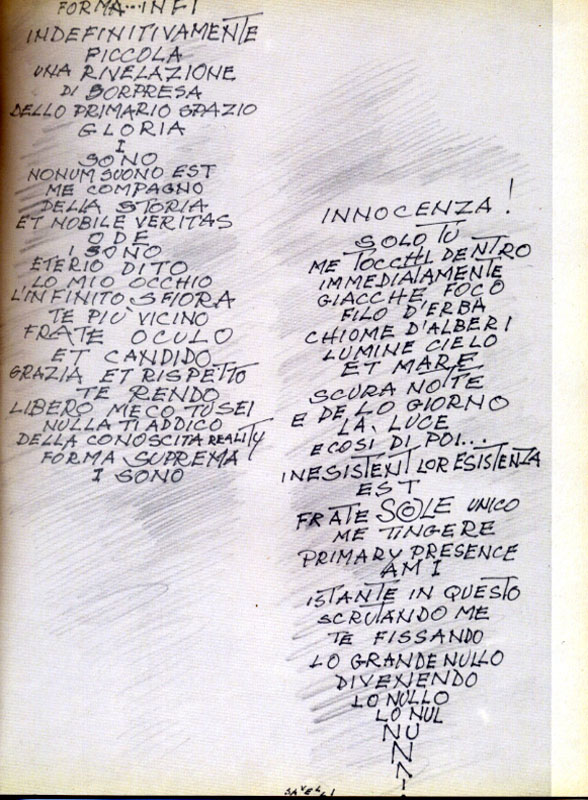 FORMA...INFI
INDEFINITIVAMENTE
PICCOLA
UNA RIVELAZIONE
DI SORPRESA
DELLO PRIMARIO SPAZIO
GLORIA
I
SONO
NONUM SUONO EST
ME COMPAGNO
DELLA STORIA
ET NOBILE VERITAS
ODE
I SONO
ETERIO DITO
LO MIO OCCHIO
L'INFINITO SFIORA
TE PIU' VICINO
FRATE OCULO
ET CANDIDO
GRAZIA ET RISPETTO
TE RENDO
LIBERO MECO TU SEI
NULLA TI ADDICO
DELLA CONOSCITA REALITY
FORMA SUPREMA
I SONO
INNOCENZA!
SOLO TU
ME TOCCHI DENTRO
IMMEDIATAMENTE
GIACCHE, FOCO
FILO D'ERBA
CHIOME D'ALBERI
LUMINE CIELO
ET MARE
SCURA NOTTE
E DE LO GIORNO
LA' LUCE
E COSI DI POI...
INESISTENT LOR ESISTENZA
EST
FRATE SOLE UNICO
ME TINGERE
PRIMARY PRESENCE
AM I
ISTANTE IN QUESTO
SCRUTANDO ME
TE FISSANDO
LO GRANDE NULLO
DIVENENDO
LO NULLO
LO NUL
NU
N
N
I
SAVELLI